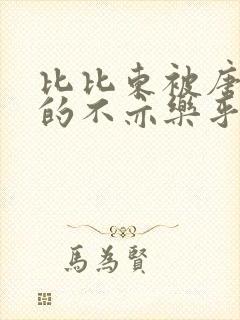 比比东被唐
的不亦樂乎
馬為賢